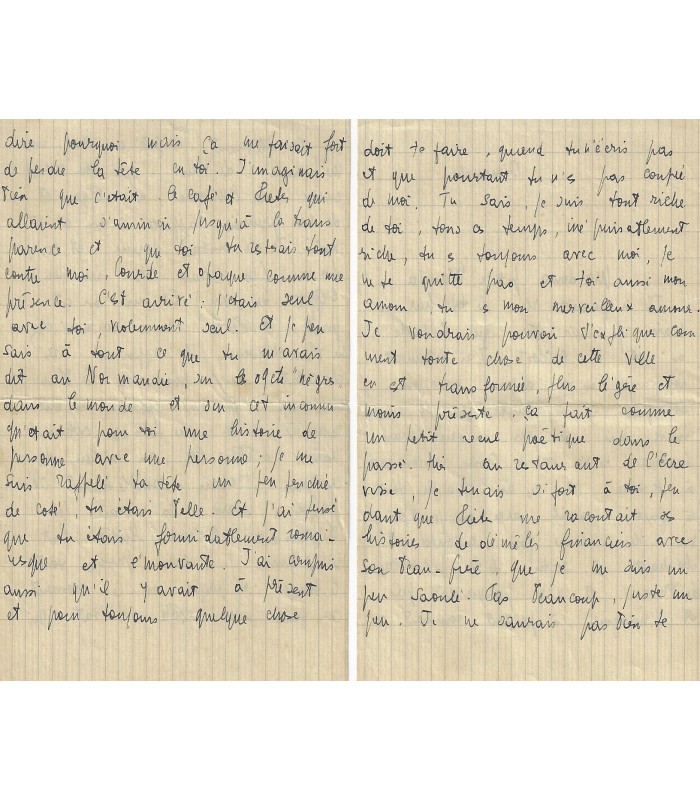 dire pourquoi mais ça me faisait fort
de perdre la tête en toi. J'imaginais
bien que c'était le café et qui
allaient s'amincir jusqu'à la trans
parence et que toi tu restrais tout
contre moi, lourde et opaque comme une
présence. C'est arrivé : j'étais seul
avec toi, violemment seul. Et je pen
sais à tout ce que tu m'avais
dit au Normandie, sur les "nègres
dans le monde et sur cet inconnu
qu'était pour toi une histoire de
personne avec une personne ; je me
suis rappelé ta tête un peu penchée
de coté, tu étais belle. Et j'ai pensé
que tu étais formidablement roma-
nesque et émouvante. J'ai compris
aussi qu'il y avait à présent
et pour toujours quelque chose
doit te faire, quand tu n'écris pas
et que pourtant tu n'es pas coupée
de moi. Tu sais, je suis tout riche
de toi, tous ces temps, inépuisablement
riche, tu es toujours avec moi, je
ne te quitte pas et toi aussi mon
amour, tu es mon merveilleux amour.
Je voudrais pouvoir t'expliquer com
ment toute chose de cette ville
en est transformée, plus légère et
moins présente, ça fait comme
un petit recul poétique dans le
passé. Hier au restaurant de l'Écre
visse, je tenais si fort à toi, pen
dant que me racontait ses
histoires de démêlés financiers avec
son beau-frère, que je me suis un
peu saoulé. Pas beaucoup, juste un
peu. Je ne saurais pas bien te